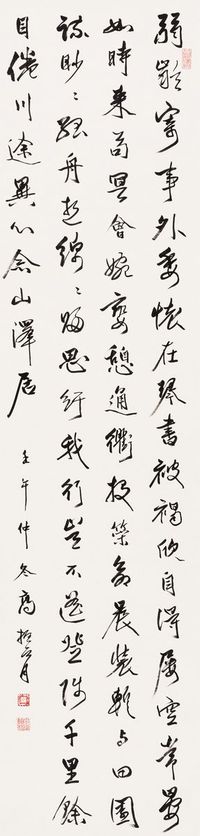 弱齡寄事外委懷在琴書被褐欣自得屢空常晏
如時來苟冥會婉孌憩通衢投策命晨裝暫与田園
疏眇〻孤舟逝綿〻歸思紆我行豈不遥登陟千里餘
目倦川途異心念山澤居
壬午仲冬高振霄